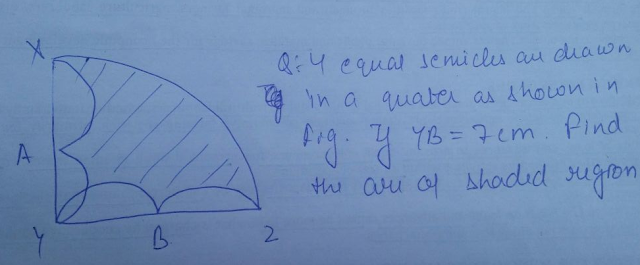 X
Q:4 equal semicles are drawn
in a quater as shown in
fig. If YB = 7cm. Find
the are of shaded region
A
Y
B
Z